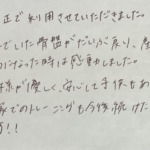 正で利用させていただきました。
でいた骨盤がだいぶ戻り、
なった時は感動しました。
が優しく、安心して子供もあ
でのトレーニングも今後続けた
!!